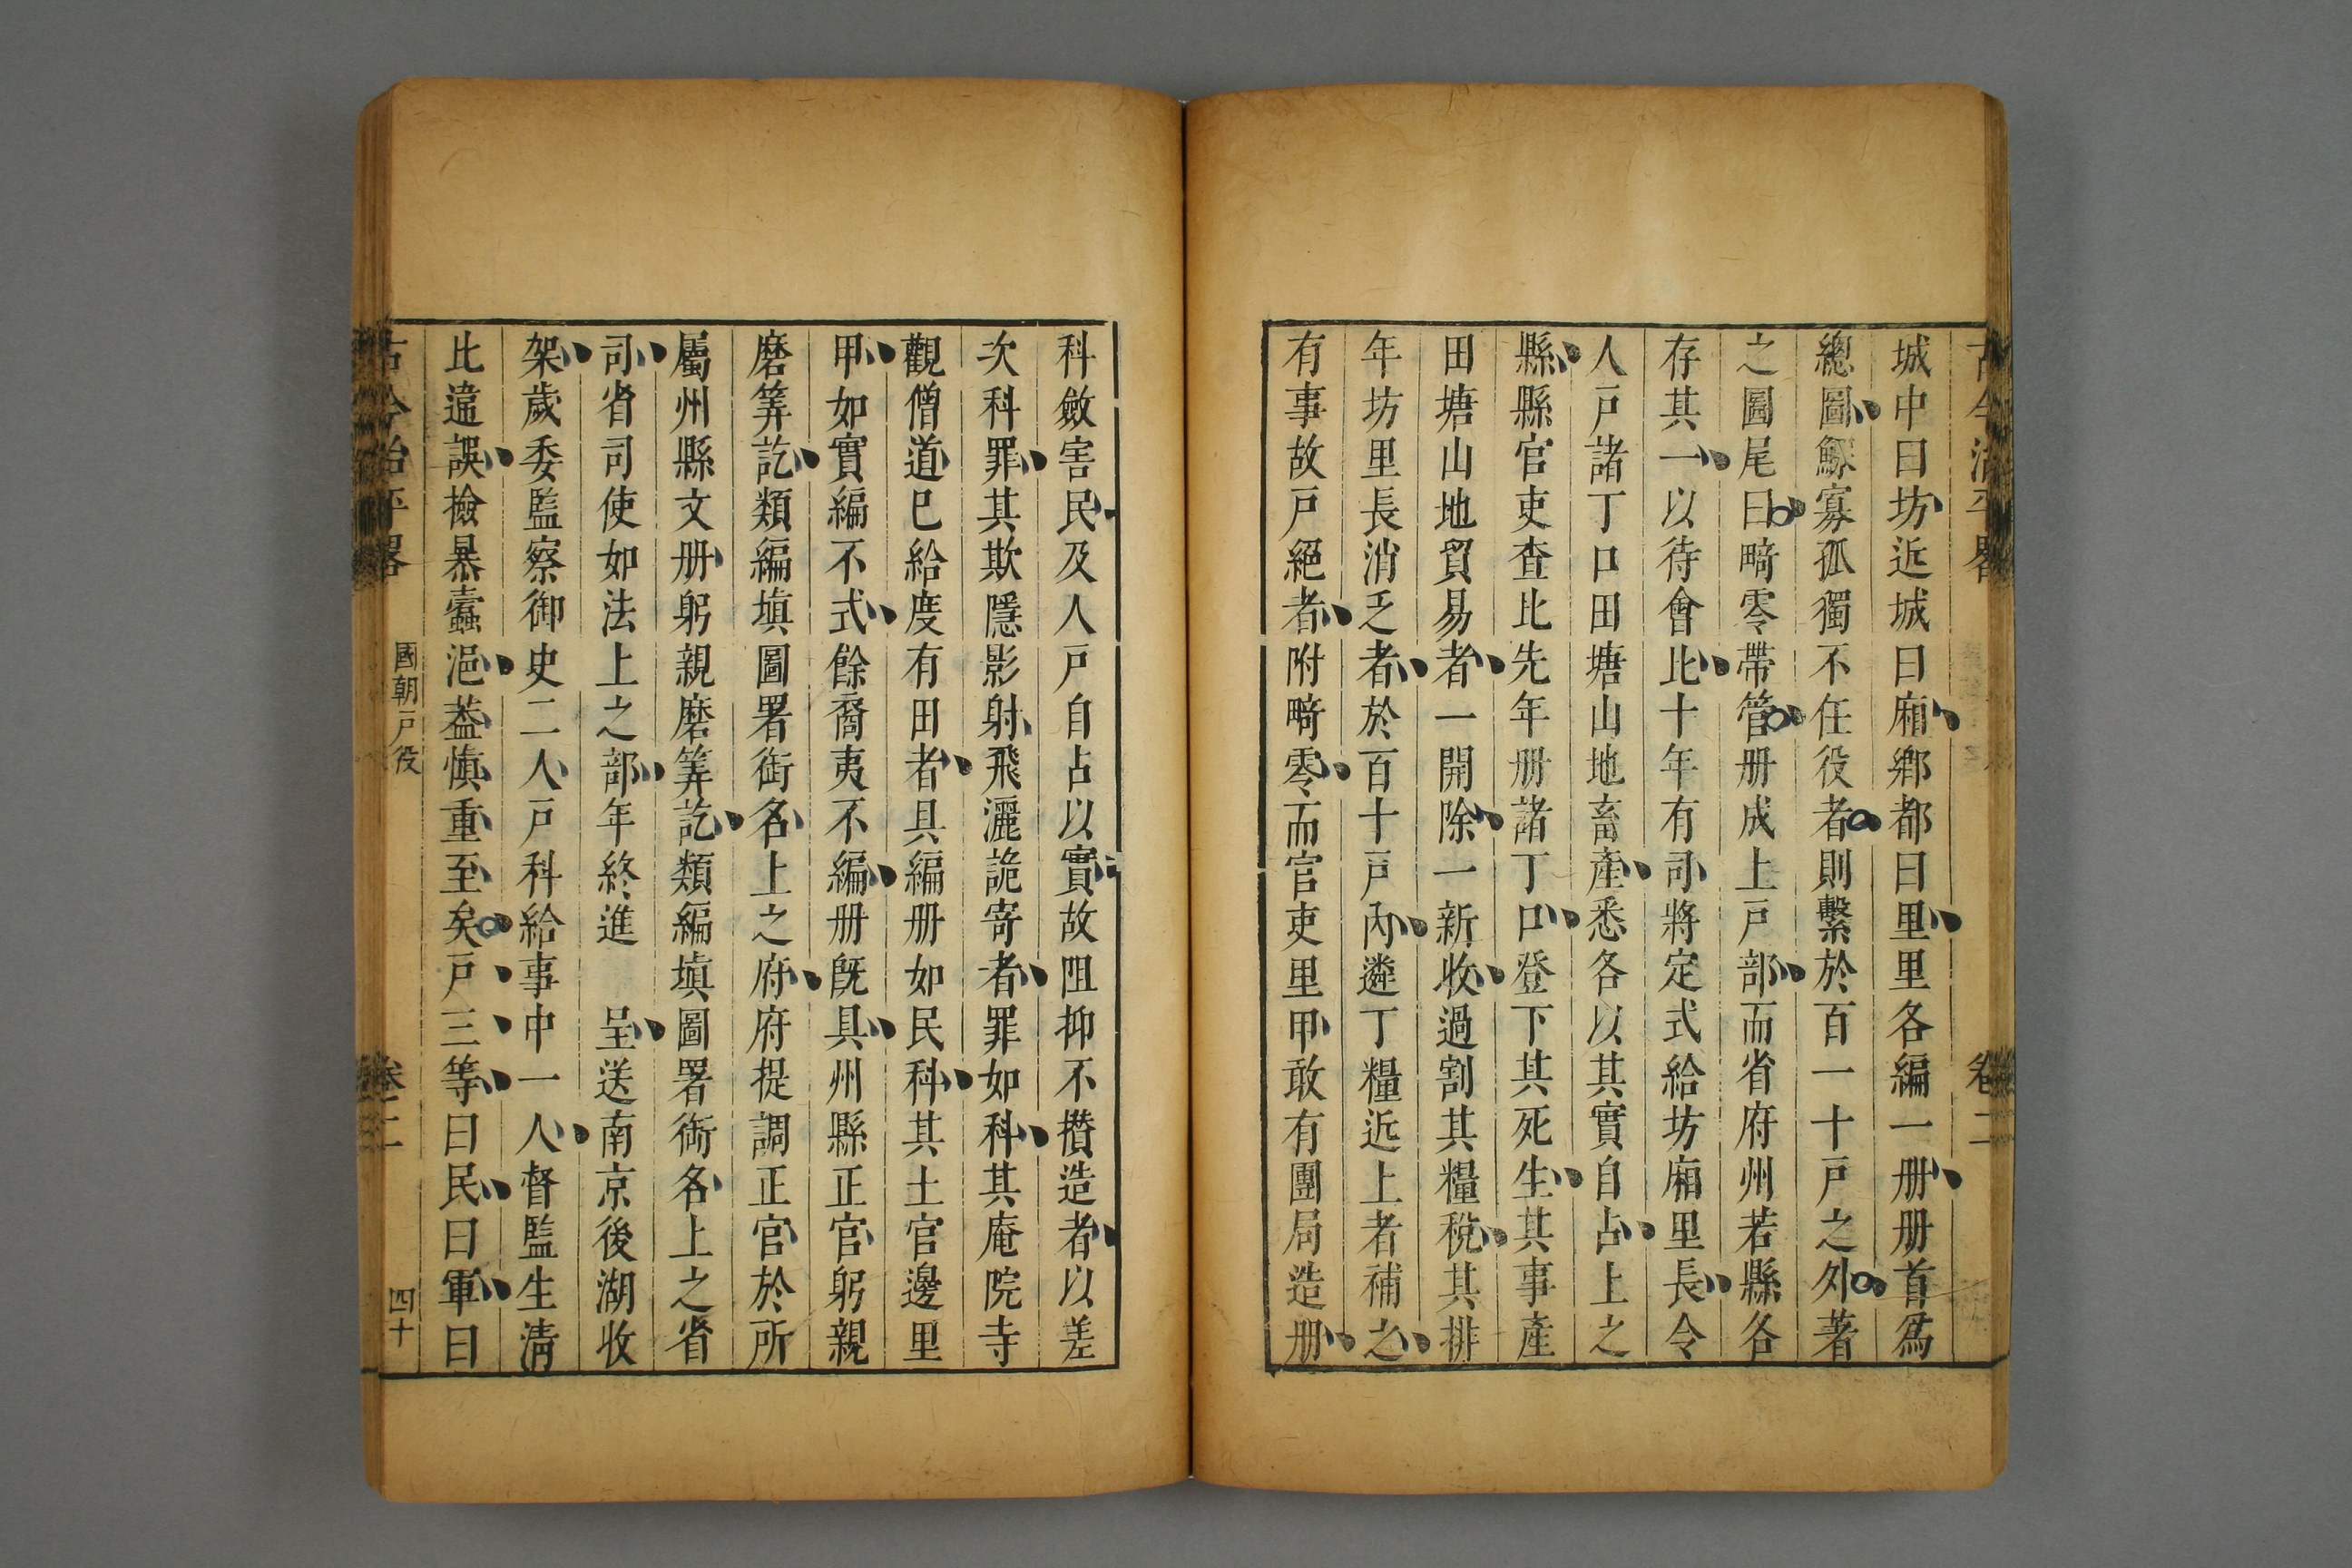 城中曰坊近城曰廂鄉都曰里里各編一册册首爲
總圖鰥寡孤獨不任役者則繫於百一十戸之外著
之圖尾曰畸零帶管册成上戸部而省府州若縣各
存其一以待會比十年有司將定式給坊廂里長令
人戸諸丁口田塘山地畜產悉各以其實自占上之
縣縣官吏查比先年册諸丁口登下其死生其事產
田塘山地貿易者一開除一新收過割其糧稅其排
年坊里長消乏者於百十戸內遴丁糧近上者補之
有事故戸絕者附畸零而官吏里甲敢有團局造册
科斂害民及人戸自占以實故阻抑不攢造者以差
次科罪其欺隱影射飛灑詭寄者罪如科其庵院寺
觀僧道已給度有田者具編册如民科其土官邊里
甲如實編不式餘裔夷不編册旣具州縣正官躬親
磨筭訖類編塡圖署銜名上之府府提調正官於所
屬州縣文册躬親磨筭訖類編塡圖署銜名上之省
司省司使如法上之部年終進 呈送南京後湖收
架歲委監察御史二人戸科給事中一人督監生淸
比違誤撿暴蠹浥葢愼重至矣戸三等曰民曰軍曰
古今治平畧 國朝戸役 卷二 四十